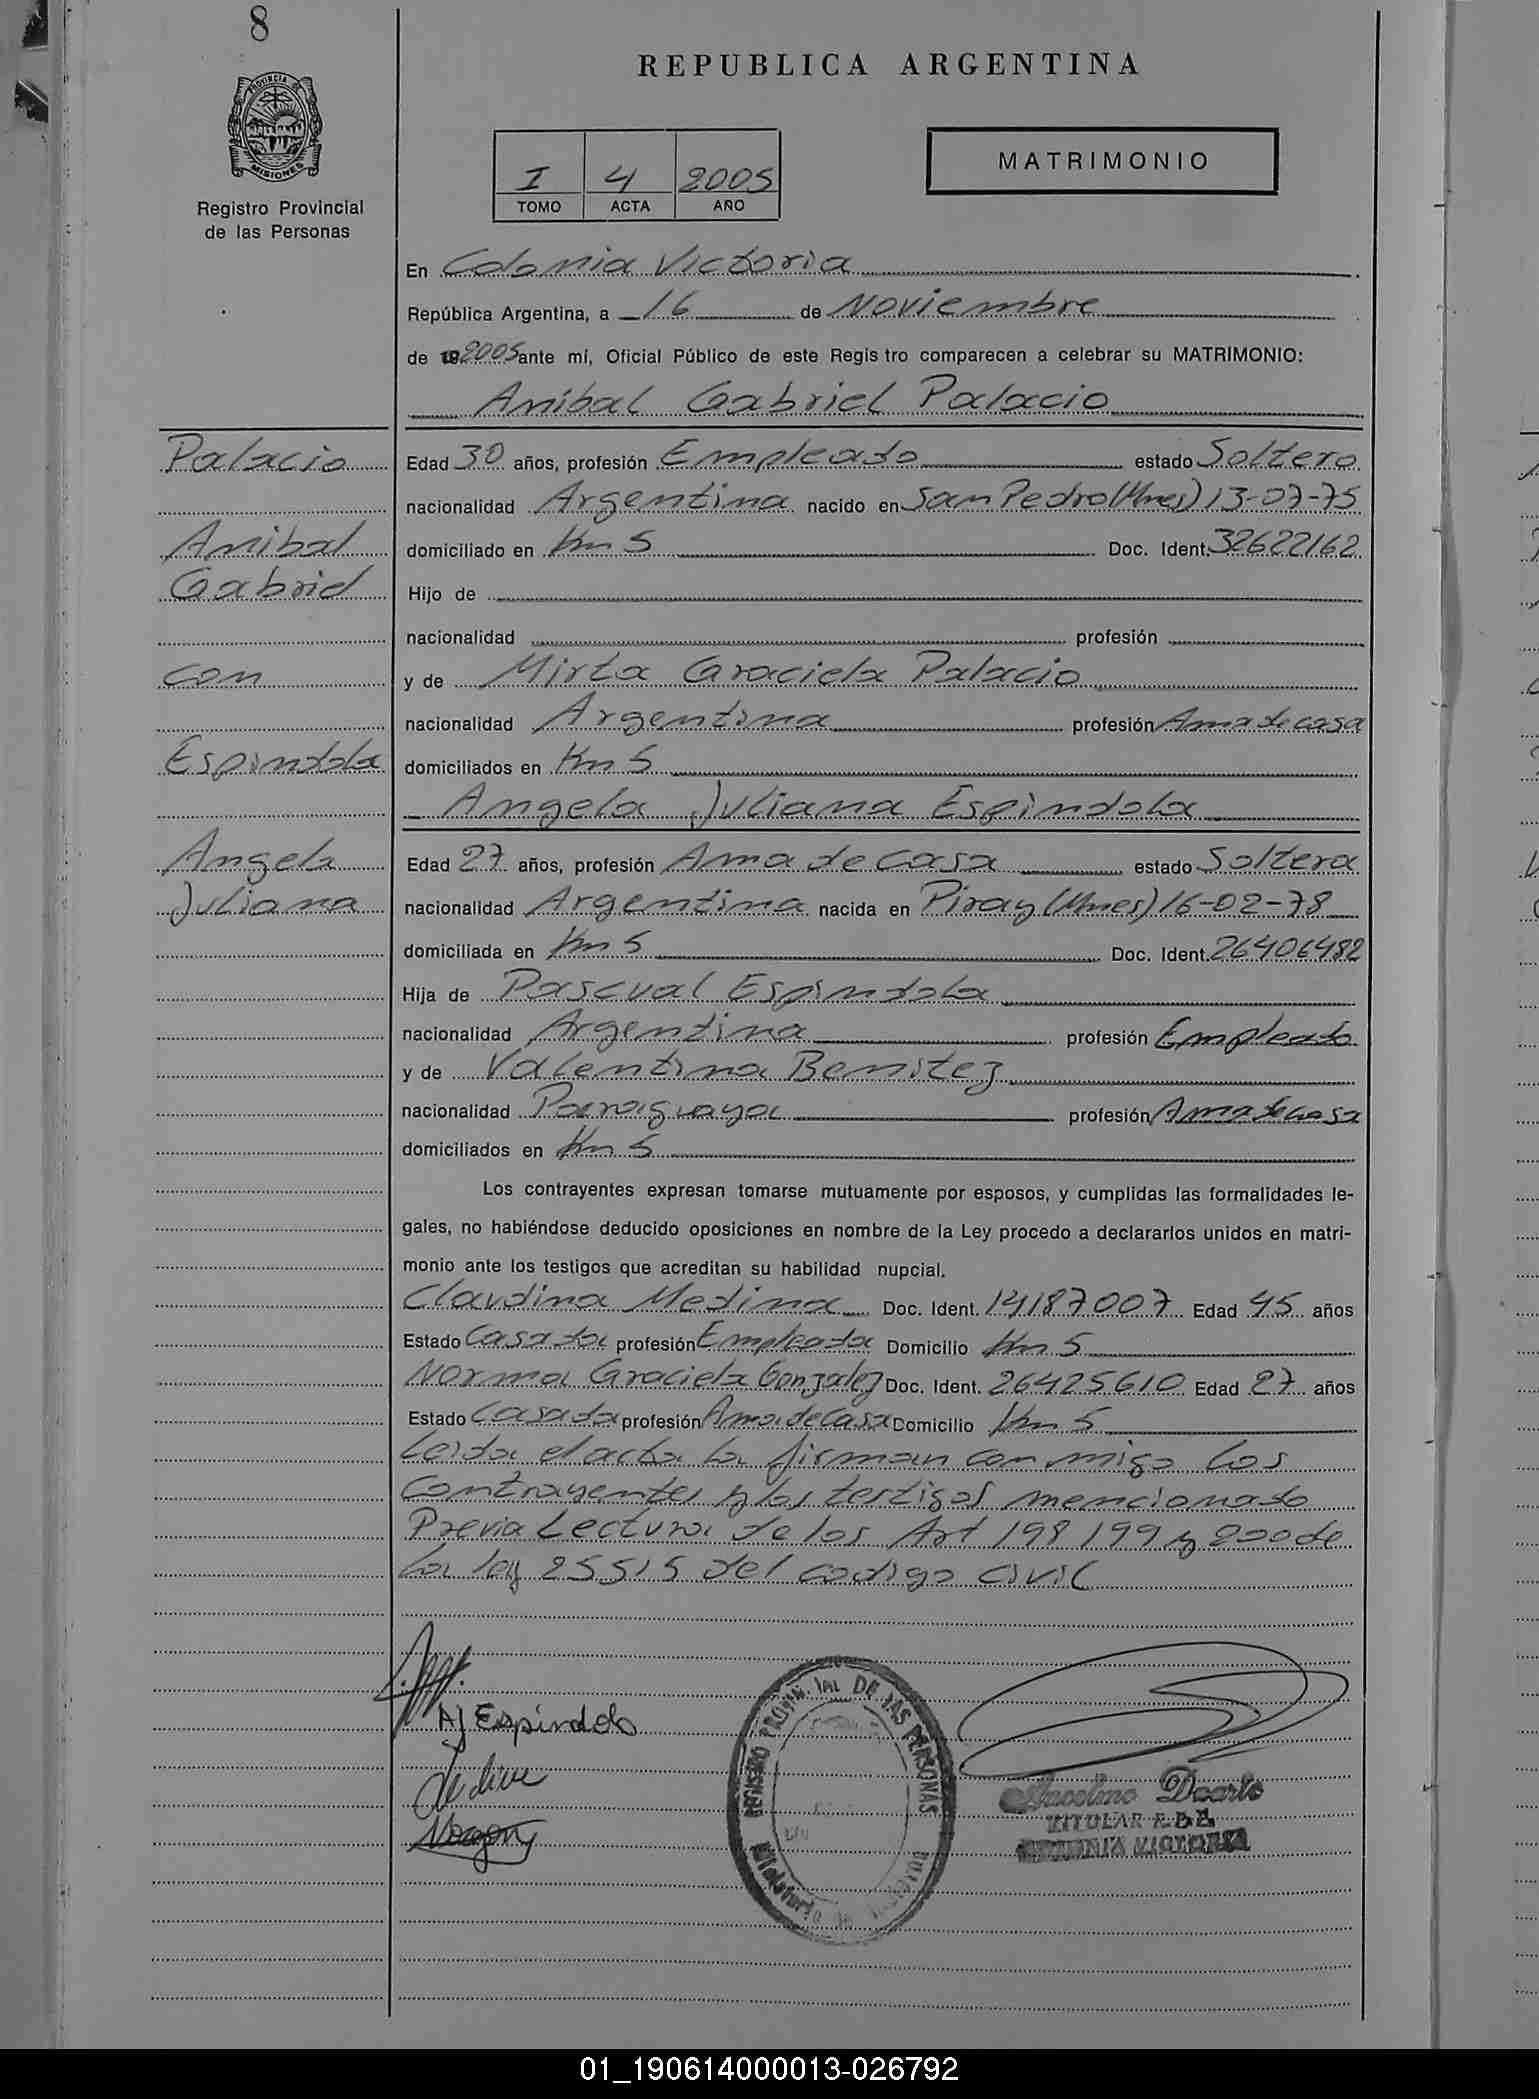 8
REPUBLICA ARGENTINA
PROVINCIA DE
MISIONES
Registro Provincial
de las Personas
I 4 2005
TOMO ACTA AÑO
MATRIMONIO
En Colonia Victoria
República Argentina, a 16 de Noviembre
de 19 2005 ante mí, Oficial Público de este Regis tro comparecen a celebrar su MATRIMONIO:
Aníbal Gabriel Palacio
Palacio
Edad 30 años, profesión Empleado estado Soltero
nacionalidad Argentina nacido en San Pedro (Mnes) 13-07-75
Anibal
domiciliado en Km 5 Doc. Ident. 32622162
Gabriel
Hijo de
nacionalidad profesión
con
y de Mirta Graciela Palacio
nacionalidad Argentina profesión Ama de casa
Espindola
domiciliados en Km 5
Angela Juliana Espindola
Angela
Edad 27 años, profesión Ama de casa estado Soltera
Juliana
nacionalidad Argentina nacida en Piray (Mnes) 16-02-78
domiciliada en Km 5 Doc. Ident. 26406482
Hija de Pascual Espindola
nacionalidad Argentina profesión Empleado
y de Valentina Benitez
nacionalidad Paraguaya profesión Ama de casa
domiciliados en Km 5
Los contrayentes expresan tomarse mutuamente por esposos, y cumplidas las formalidades le-
gales, no habiéndose deducido oposiciones en nombre de la Ley procedo a declararlos unidos en matri-
monio ante los testigos que acreditan su habilidad nupcial.
Claudina Medina Doc. Ident. 14187007 Edad 45 años
Estado Casada profesión Empleada Domicilio Km 5
Norma Graciela Gonzalez Doc. Ident. 26425610 Edad 27 años
Estado Casada profesión Ama de Casa Domicilio Km 5
Leida el acta la firman conmigo los
Contrayentes y los testigos mencionado
Previa Lectura de los Art 198 199 y 200 de
la ley 25515 del codigo civil
AJ Espindola
REGISTRO PROVINCIAL DE LAS PERSONAS
Ministerio de
Duarte
TITULAR
COLONIA VICTORIA
01_190614000013-026792